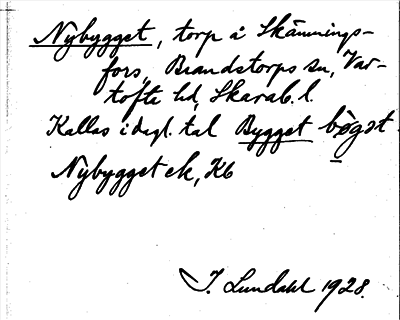 Nybygget, torp å Skämnings-
fors, Brandstorps sn, Var-
tofta hd, Skarab. l.
Kallas i dagl. tal Bygget bỳgət.
Nybygget ek, Kb
J. Lundahl 1928.